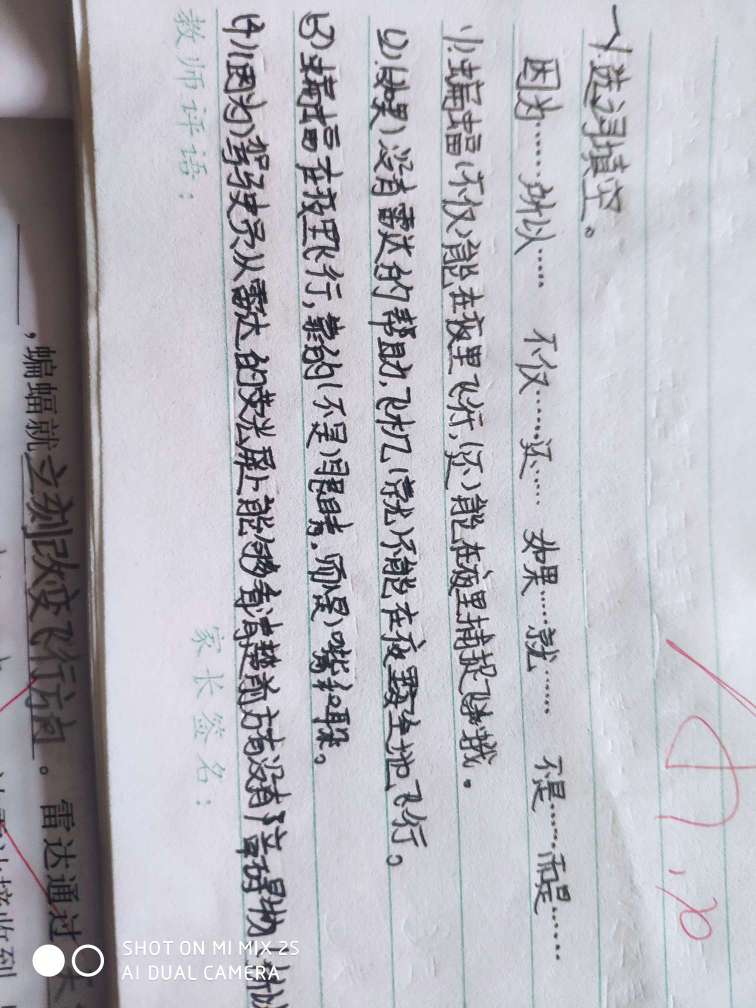 一、选词填空。
因为……所以…… 不仅……还…… 如果……就…… 不是……而是……
(1).蝙蝠(不仅)能在夜里飞行,(还)能在夜里捕捉飞蛾。
(2)(如果)没有雷达的帮助,飞机(就)不能在夜里安全地飞行。
(3)蝙蝠在夜里飞行,靠的(不是)眼睛,(而是)嘴和耳朵。
(4)(因为)驾驶员从雷达的荧光屏上能够看清楚前方有没有障碍物 所以
教师评语: 家长签名:
,蝙蝠就立刻改变飞行方向。雷达通过天
达接收到
SHOT ON MI MIX 2S
AI DUAL CAMERA